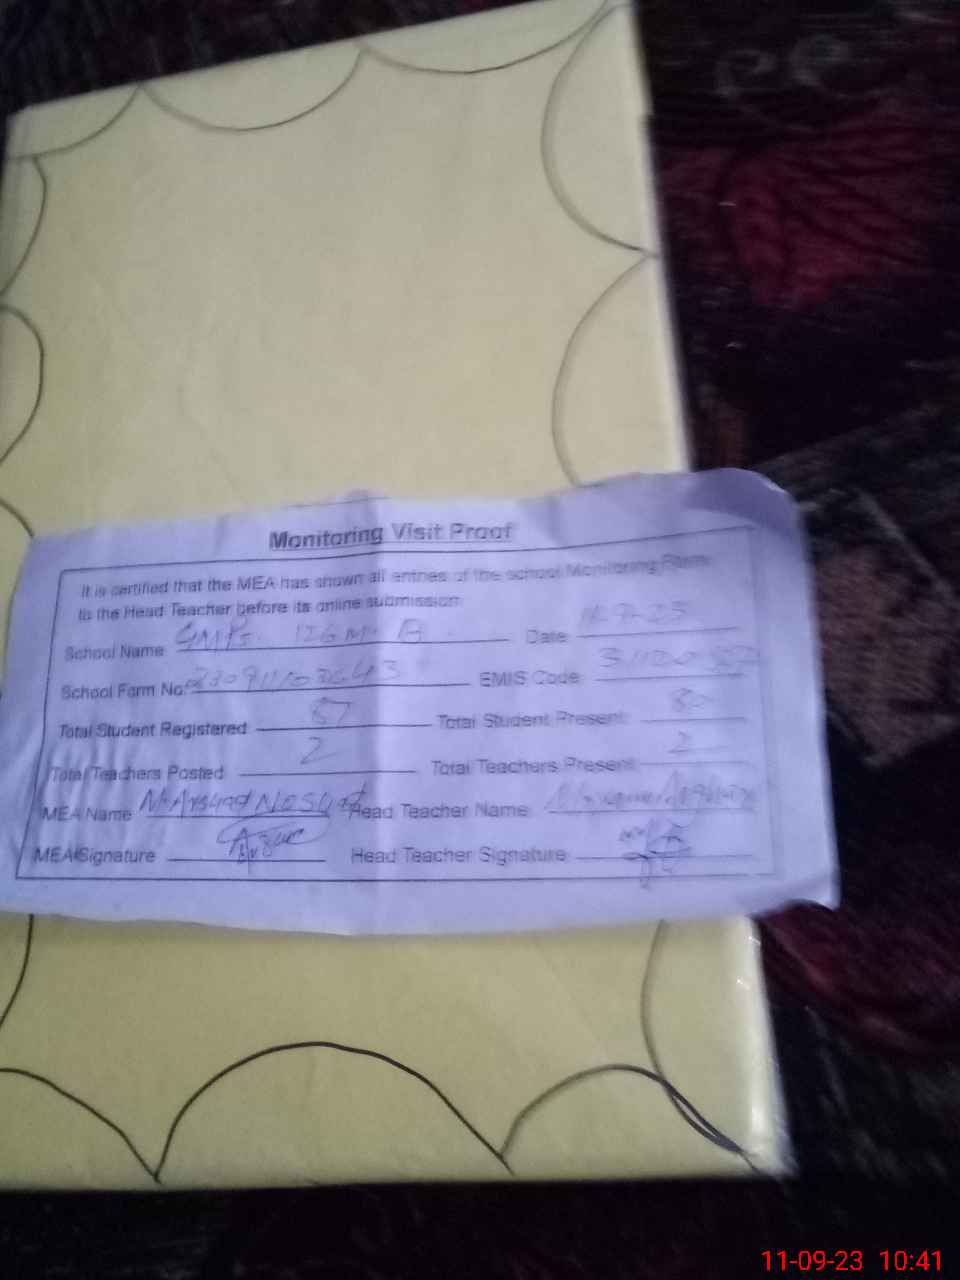 Monitoring Visit Proof
It is certified that the MEA has shown all entries of the school Monitoring Form
to the Head Teacher before its online submission
School Name GMPS. 126 M. B Date
School Farm No. EMIS Code
Total Student Registered 87 Total Student Present 80
Total Teachers Posted 2 Total Teachers Present 2
MEA Name M. Arshad Head Teacher Name
MEA Signature Head Teacher Signature
11-09-23 10:41